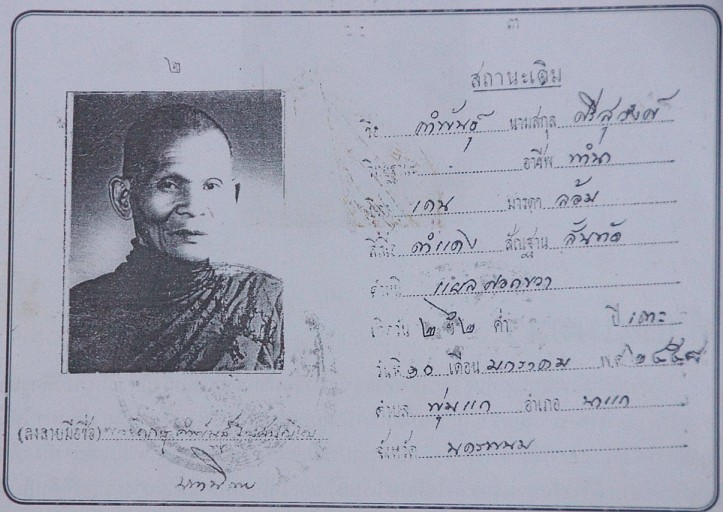 ๒
(ลงลายมือชื่อ)
๓
สถานะเดิม
ชื่อ คำพันธ์ นามสกุล ศรีสุวงศ์
อาชีพ ทำนา
เคน มารดา ล้อม
สีเนื้อ ดำแดง สัณฐาน สันทัด
ตำหนิ แผล ขวา
เกิดวัน ๒ ๒ ค่ำ ปี เถาะ
วันที่ ๒๐ เดือน มกราคม พ.ศ. ๒๔๕๘
ตำบล พุ่มแก อำเภอ นาแก
จังหวัด นครพนม